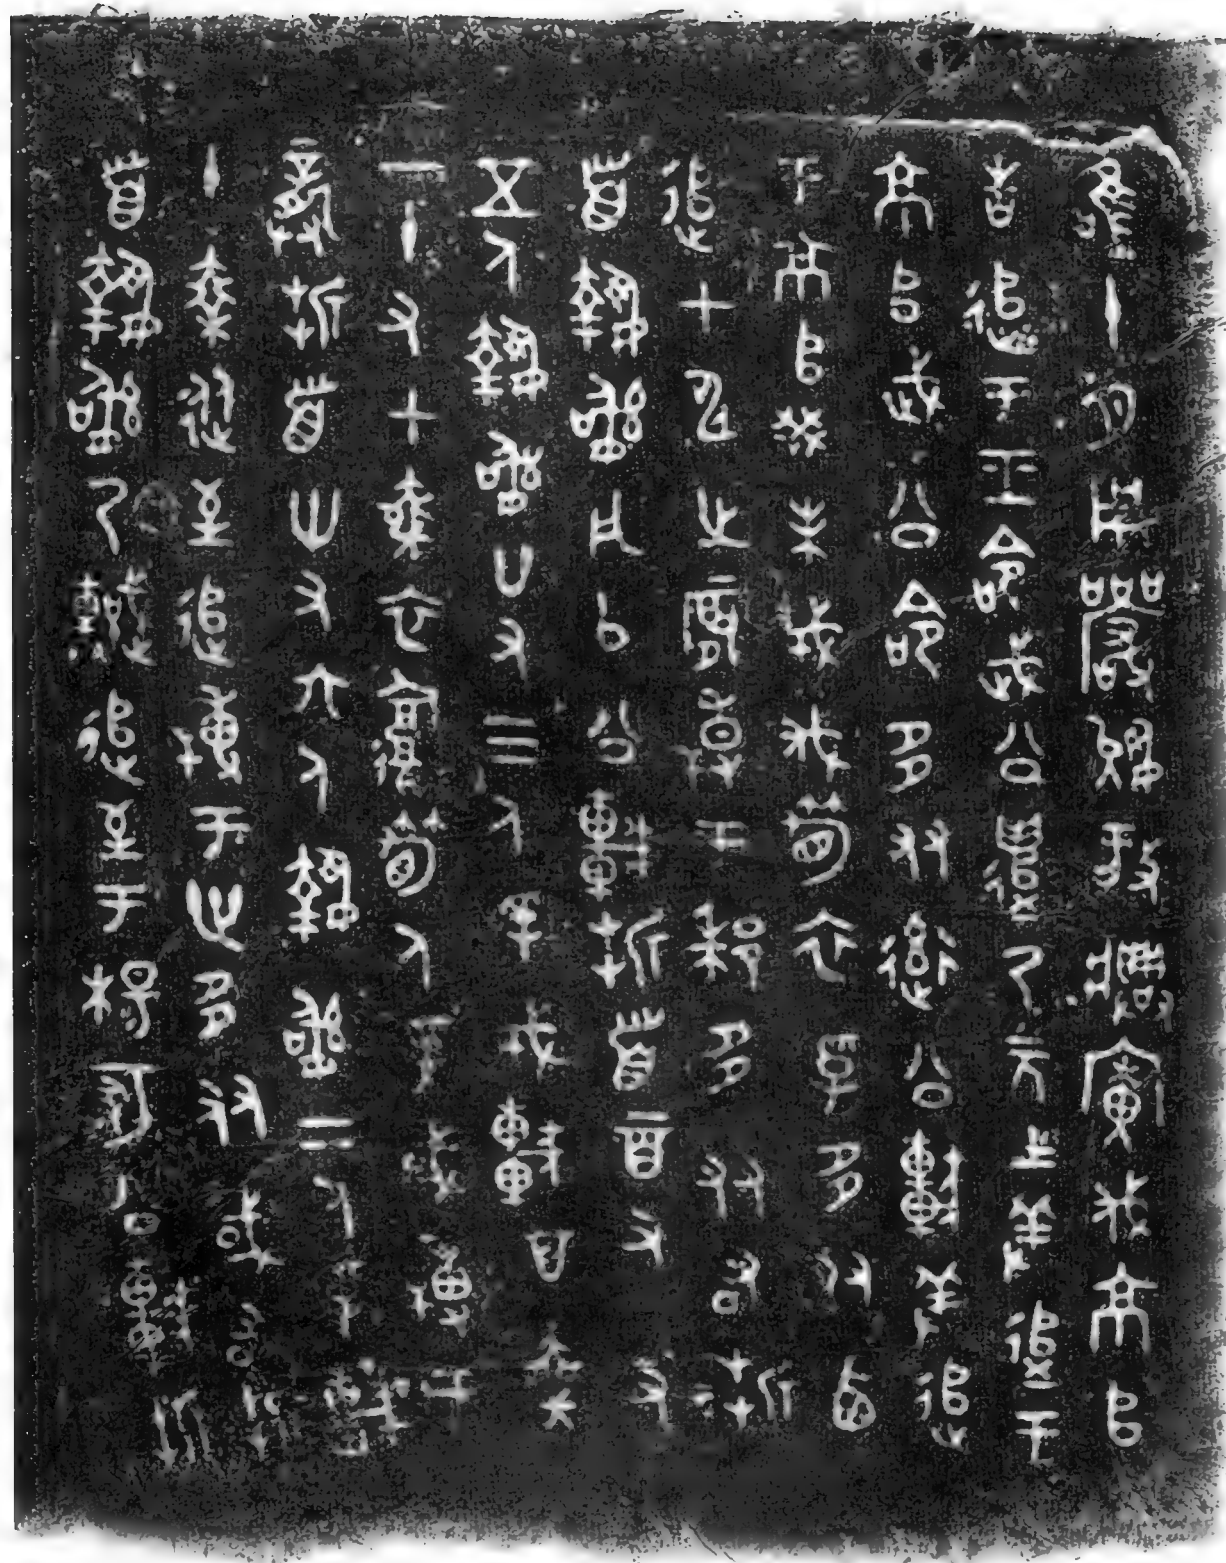 唯十月用玁狁放興廣伐京𠂤
告追于王命武公遣乃元士羞追于
京𠂤武公命多友率公車羞追
于京𠂤癸未戎伐筍衣孚多友西
追甲申之晨搏于郗多友右折
首執訊凡以公車折首二百又□又
五人執訊廿又三人孚戎車百乘
一十又七乘衣復筍人孚或搏于
龔折首卅又六人執訊二人孚車
十乘從至追搏于世多友或右折
首執訊乃𨖍追至于楊冢公車折